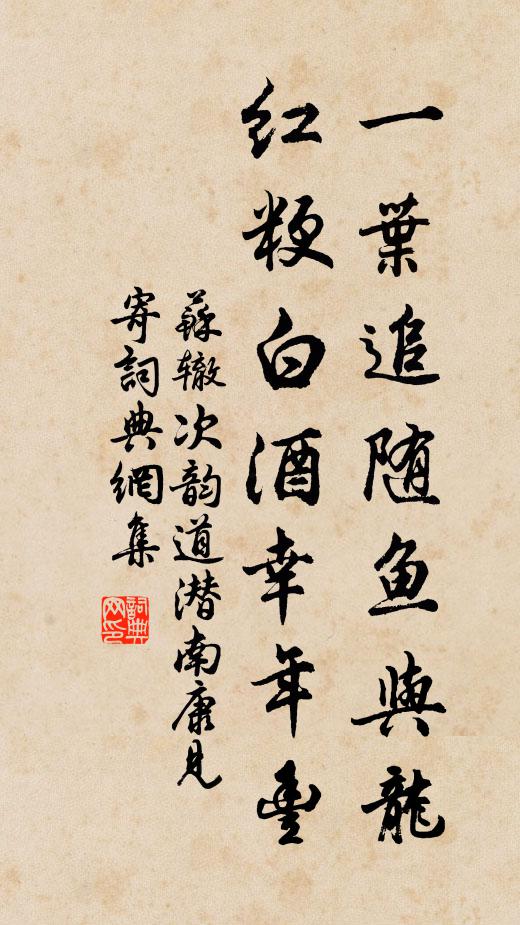 一葉追随魚與龍
紅粳白酒幸年豊
蘇辙次韵道潜南康見
寄詞典網集
詞典
网印